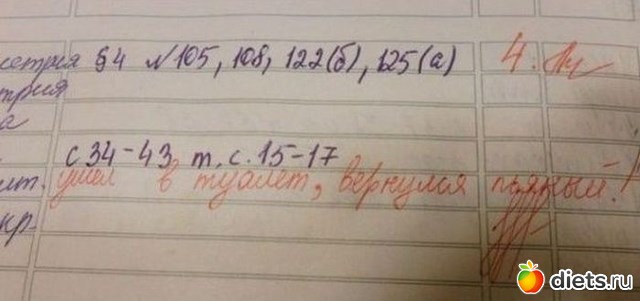 етрия §4 №105, 108, 122(б), 125(а) 4.
трия
а
с 34-43 т. с. 15-17
ит. ушел в туалет, вернулся пьяный!
кр.
diets.ru